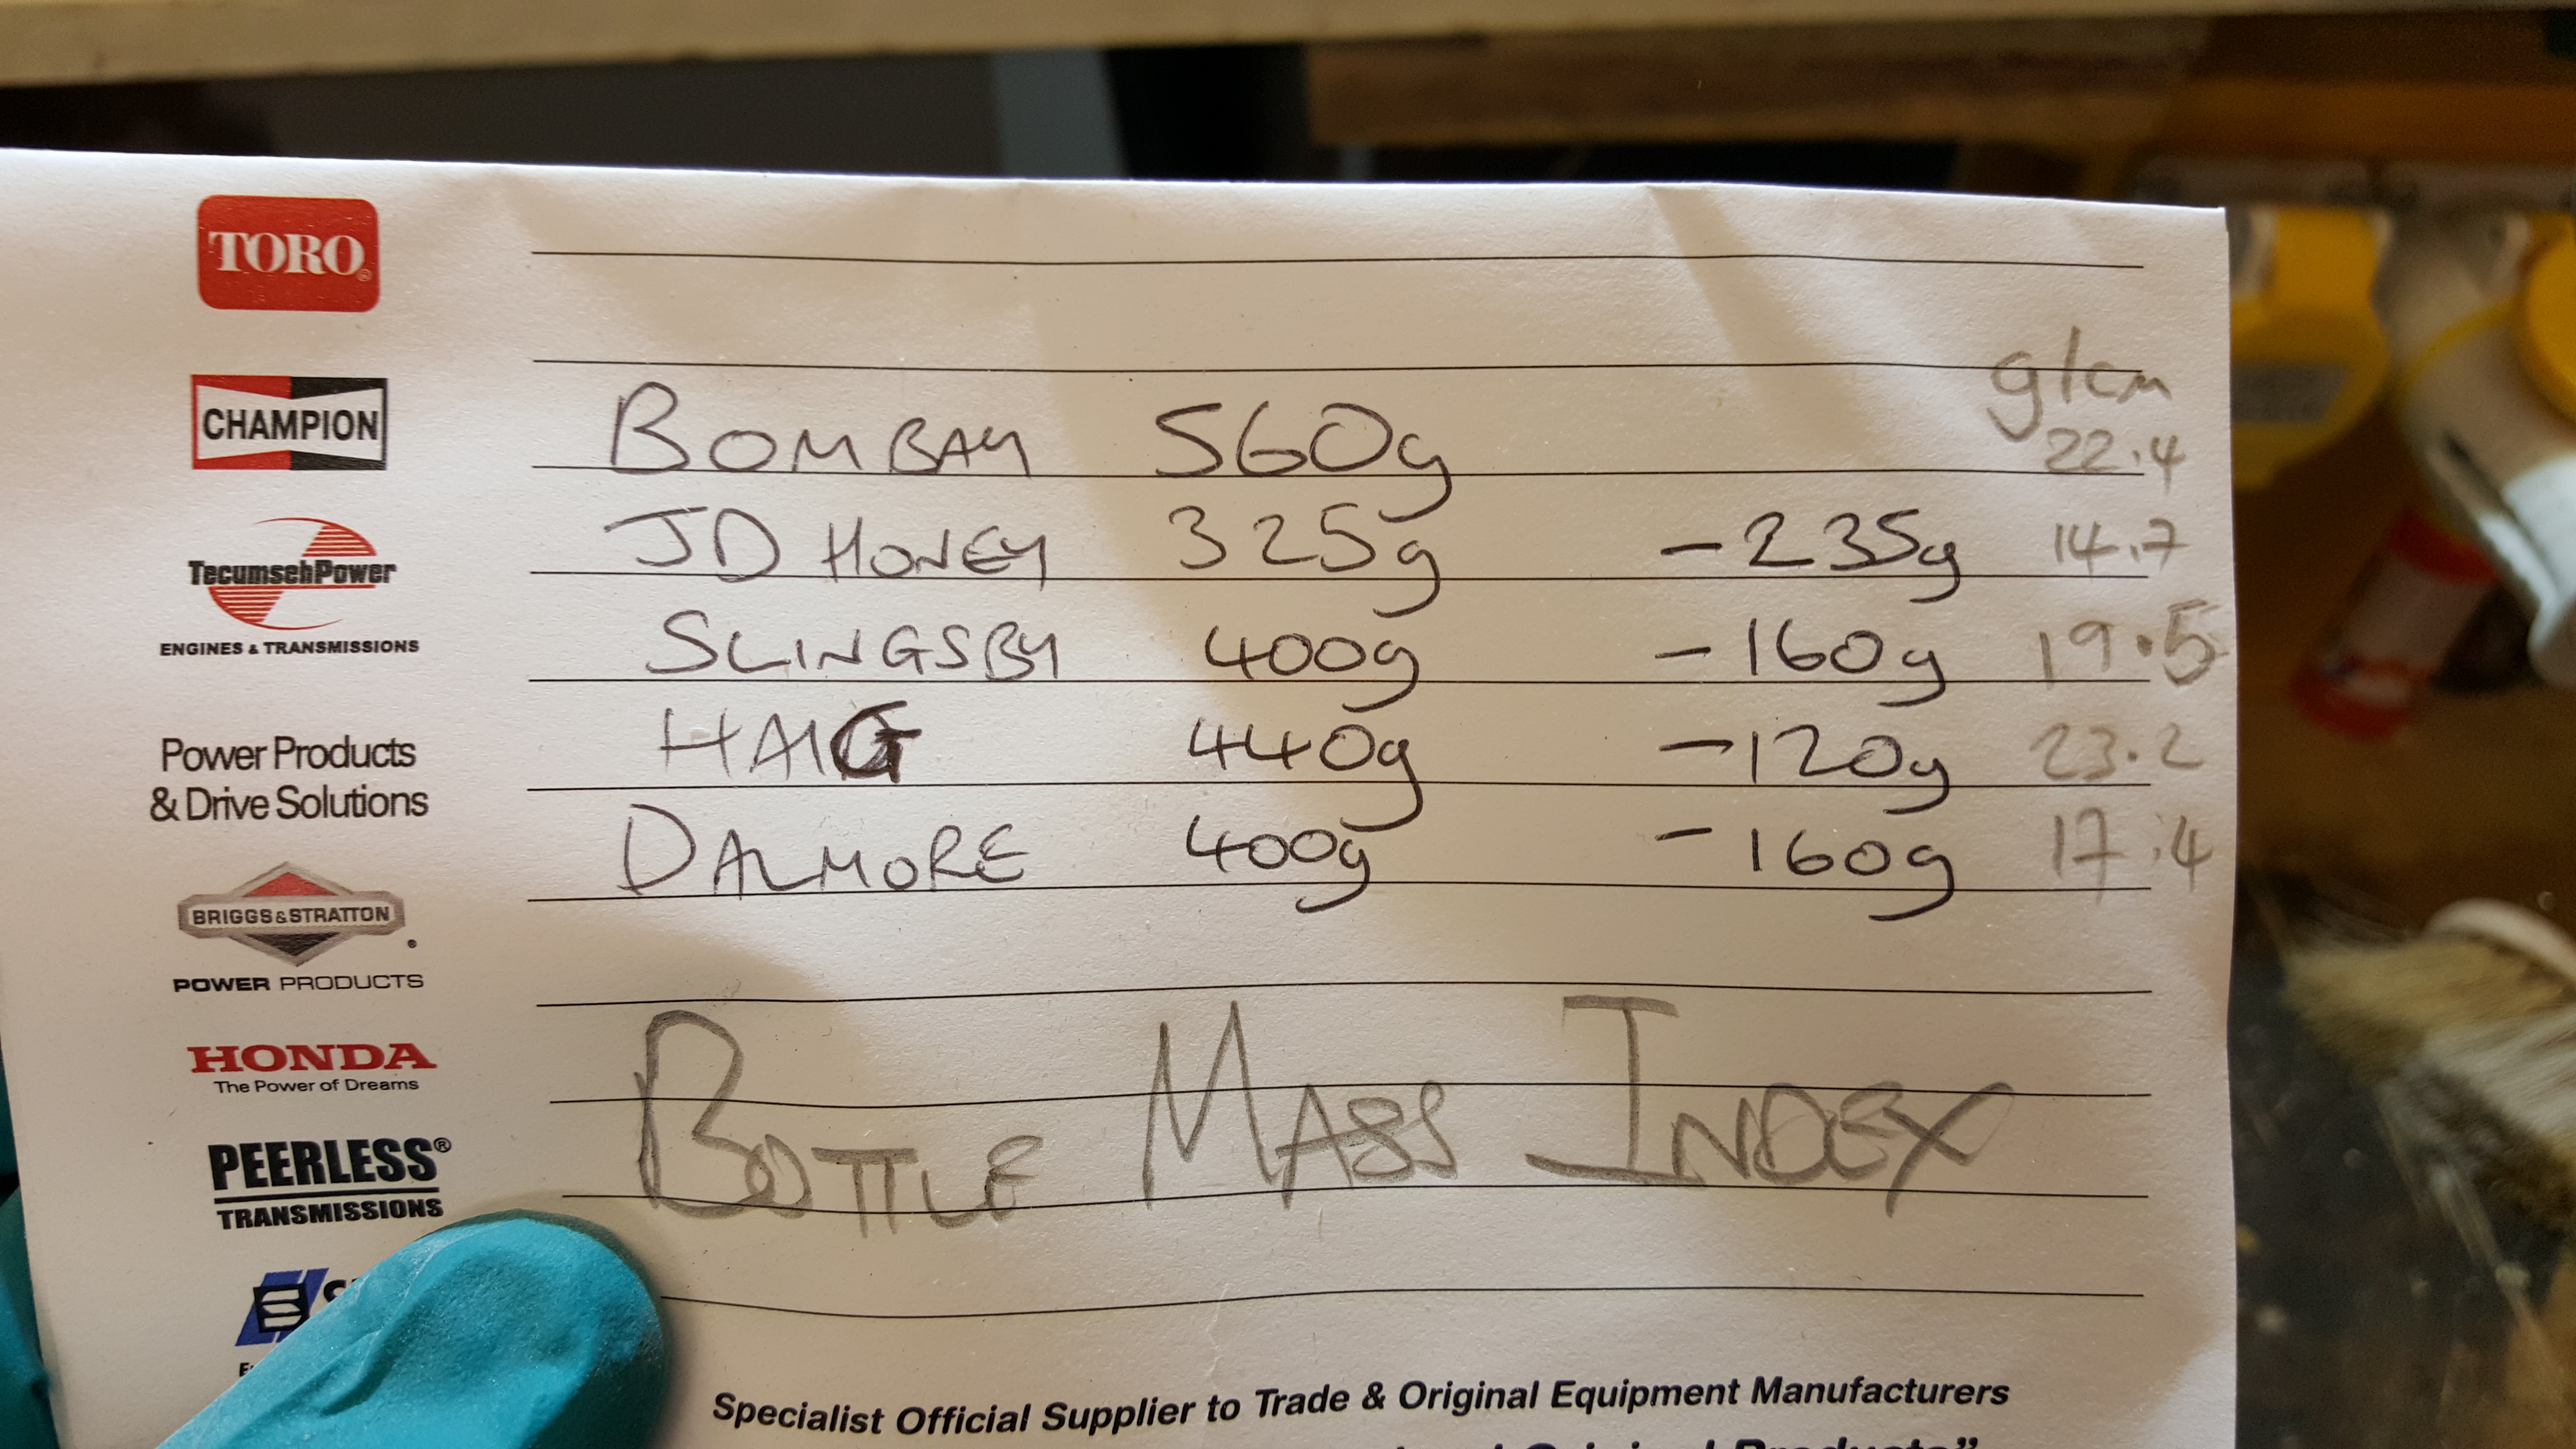 TORO®
CHAMPION
TecumsehPower
ENGINES & TRANSMISSIONS
Power Products
& Drive Solutions
BRIGGS & STRATTON
POWER PRODUCTS
HONDA
The Power of Dreams
PEERLESS®
TRANSMISSIONS
g/cm
BOMBAY 560g 22.4
JD HONEY 325g -235g 14.7
SLINGSBY 400g -160g 19.5
HAIG 440g -120g 23.2
DALMORE 400g -160g 17.4
BOTTLE MASS INDEX
Specialist Official Supplier to Trade & Original Equipment Manufacturers